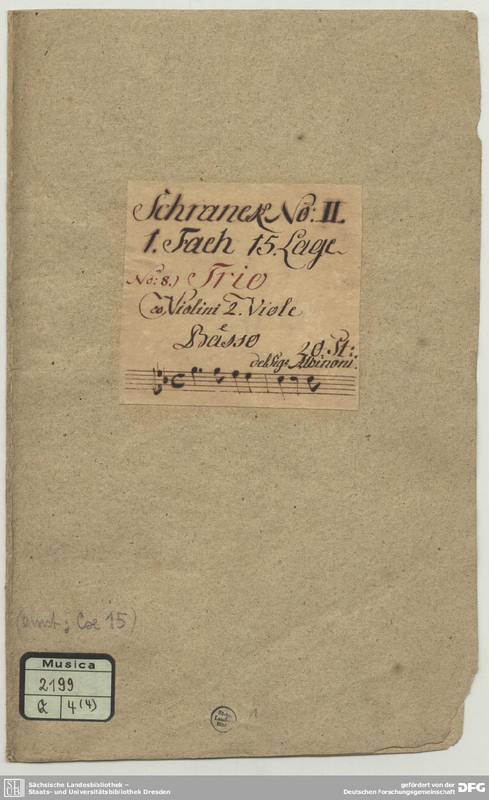 Schranck No: II.
1. Fach 15. Lage
No: 8.) Trio
co Violini 2. Viole
e
Basso
20. St:
del Sigr Albinoni.
Cx 15)
Musica
2199
Q 4(4)
Sächs.
Landes-
Bibl.
1
SLUB
Sächsische Landesbibliothek –
Staats- und Universitätsbibliothek Dresden
gefördert von der
Deutschen Forschungsgemeinschaft
DFG